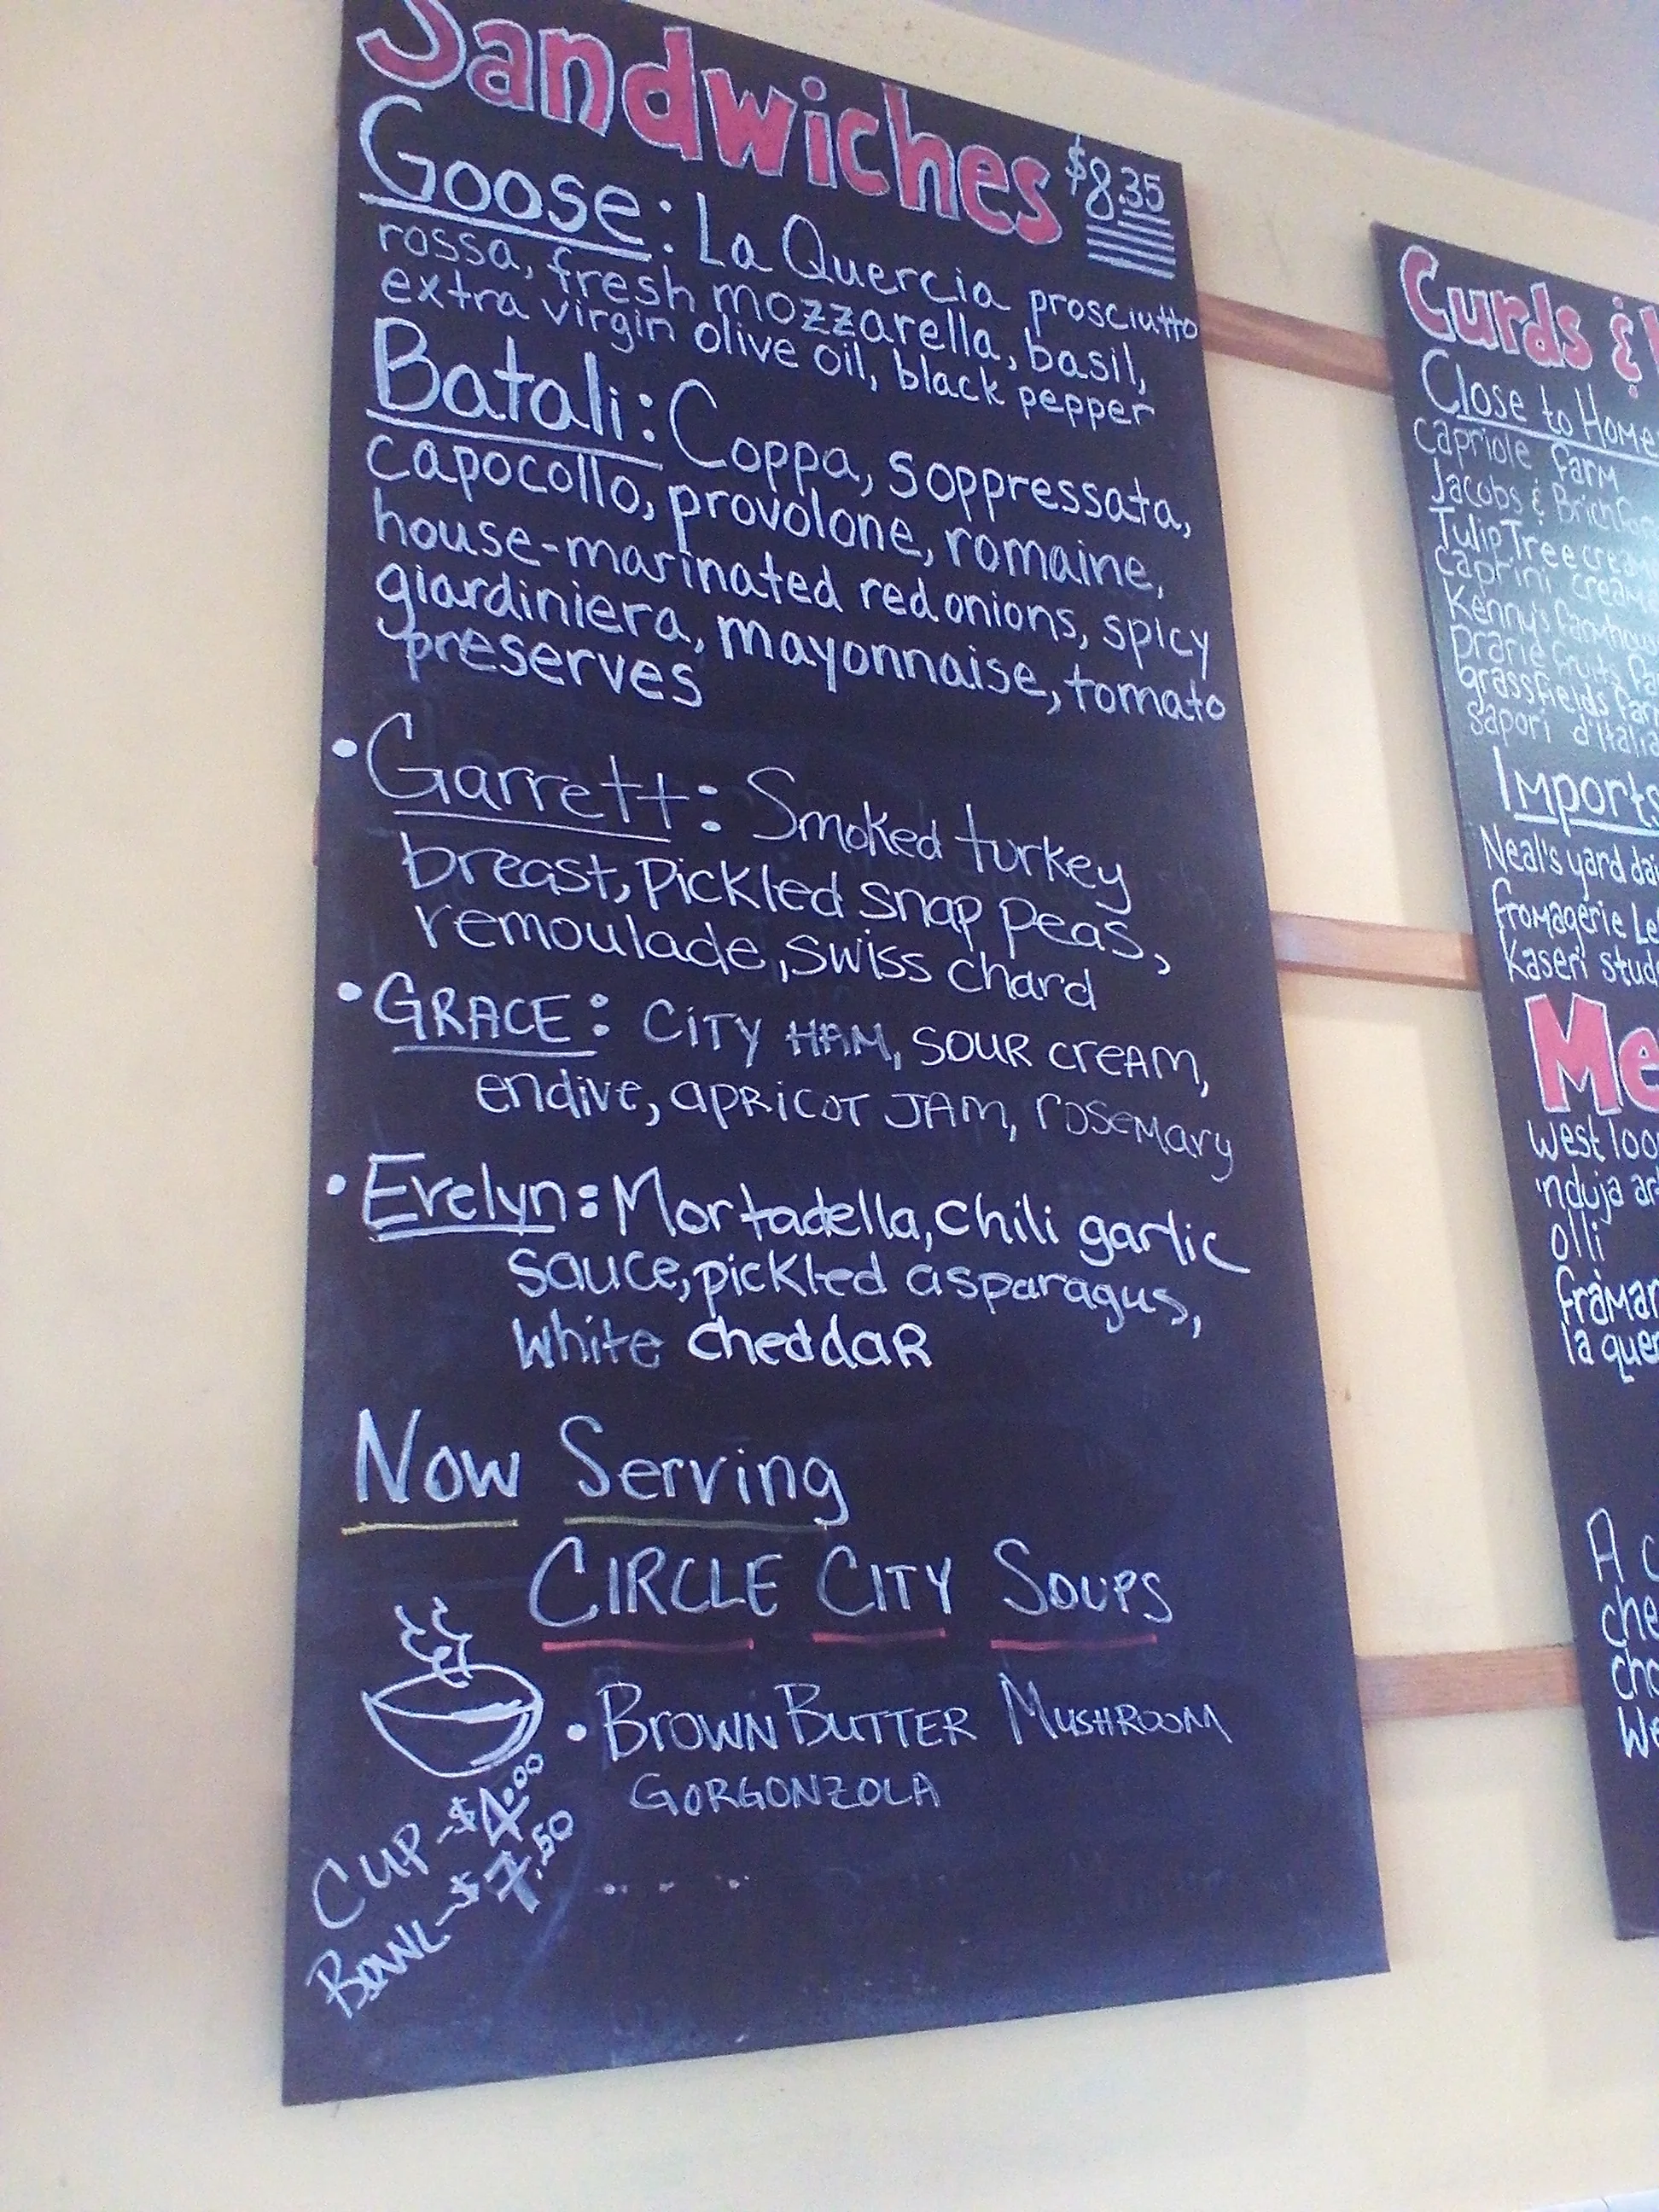 Sandwiches $8.35
Goose: La Quercia prosciutto
rossa, fresh mozzarella, basil,
extra virgin olive oil, black pepper
Batali: Coppa, soppressata,
capocollo, provolone, romaine,
house-marinated red onions, spicy
giardiniera, mayonnaise, tomato
preserves
• Garrett: Smoked turkey
breast, Pickled snap peas,
remoulade, swiss chard
• GRACE: CITY HAM, SOUR CREAM,
endive, APRICOT JAM, rosemary
• Evelyn: Mortadella, chili garlic
sauce, pickled asparagus,
white cheddar
Now Serving
CIRCLE CITY SOUPS
• BROWN BUTTER MUSHROOM
GORGONZOLA
CUP - $4.00
BOWL - $7.50
Curds &
Close to Home
capriole farm
Jacobs &
TulipTree
caprini
Kenny's
prarie fruits
grassfields
sapori d'Italia
Imports
Neal's yard
fromagerie
Kaseri
west
'nduja
olli
la
A